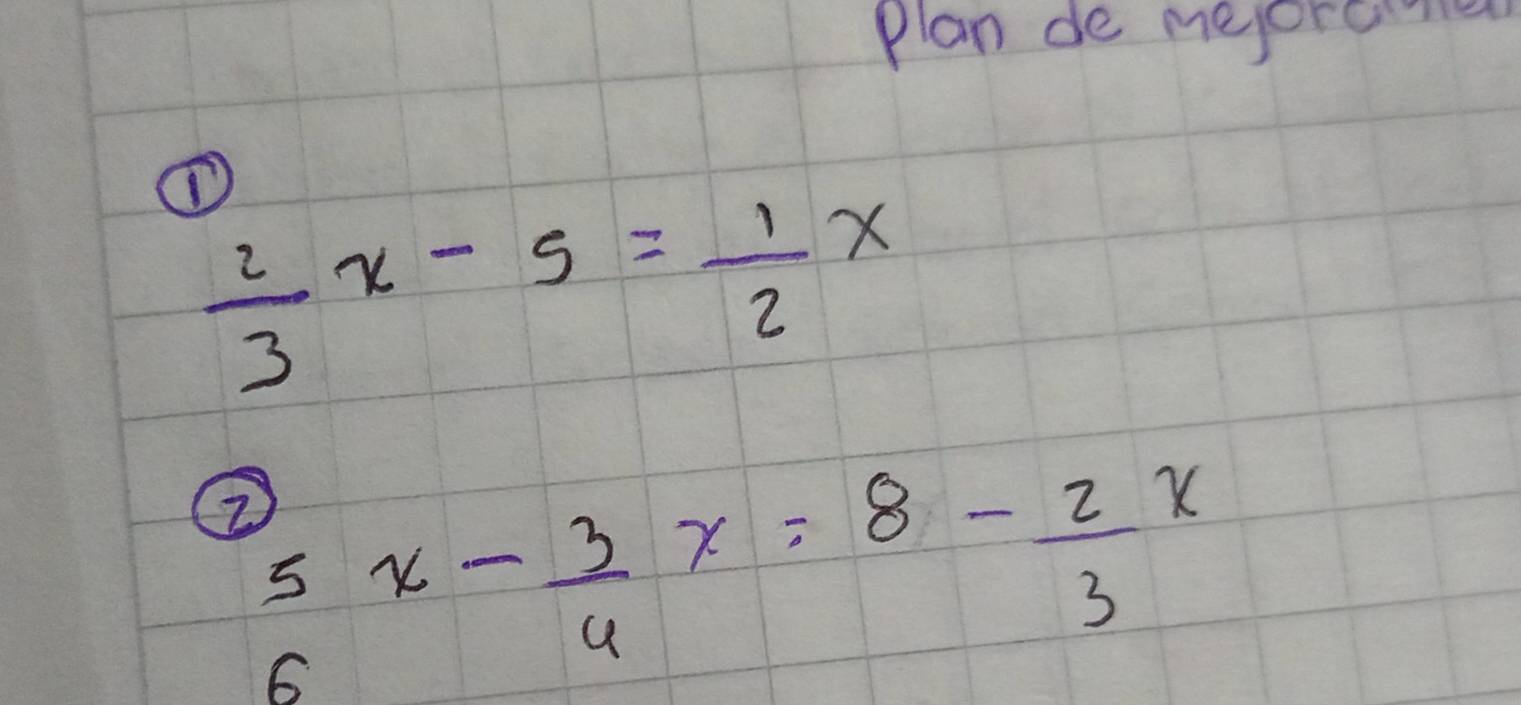 Plan de
①
2/3 x - 5 = 1/2 x
②
5/6 x - 3/4 x = 8 - 2/3 x